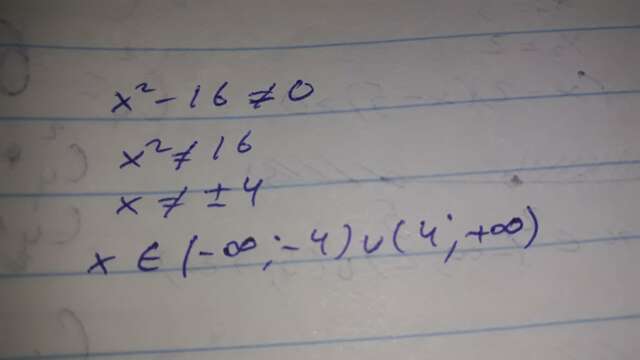 x² - 16 ≠ 0
x² ≠ 16
x ≠ ± 4
x ∈ (-∞; -4) ∪ (4; +∞)